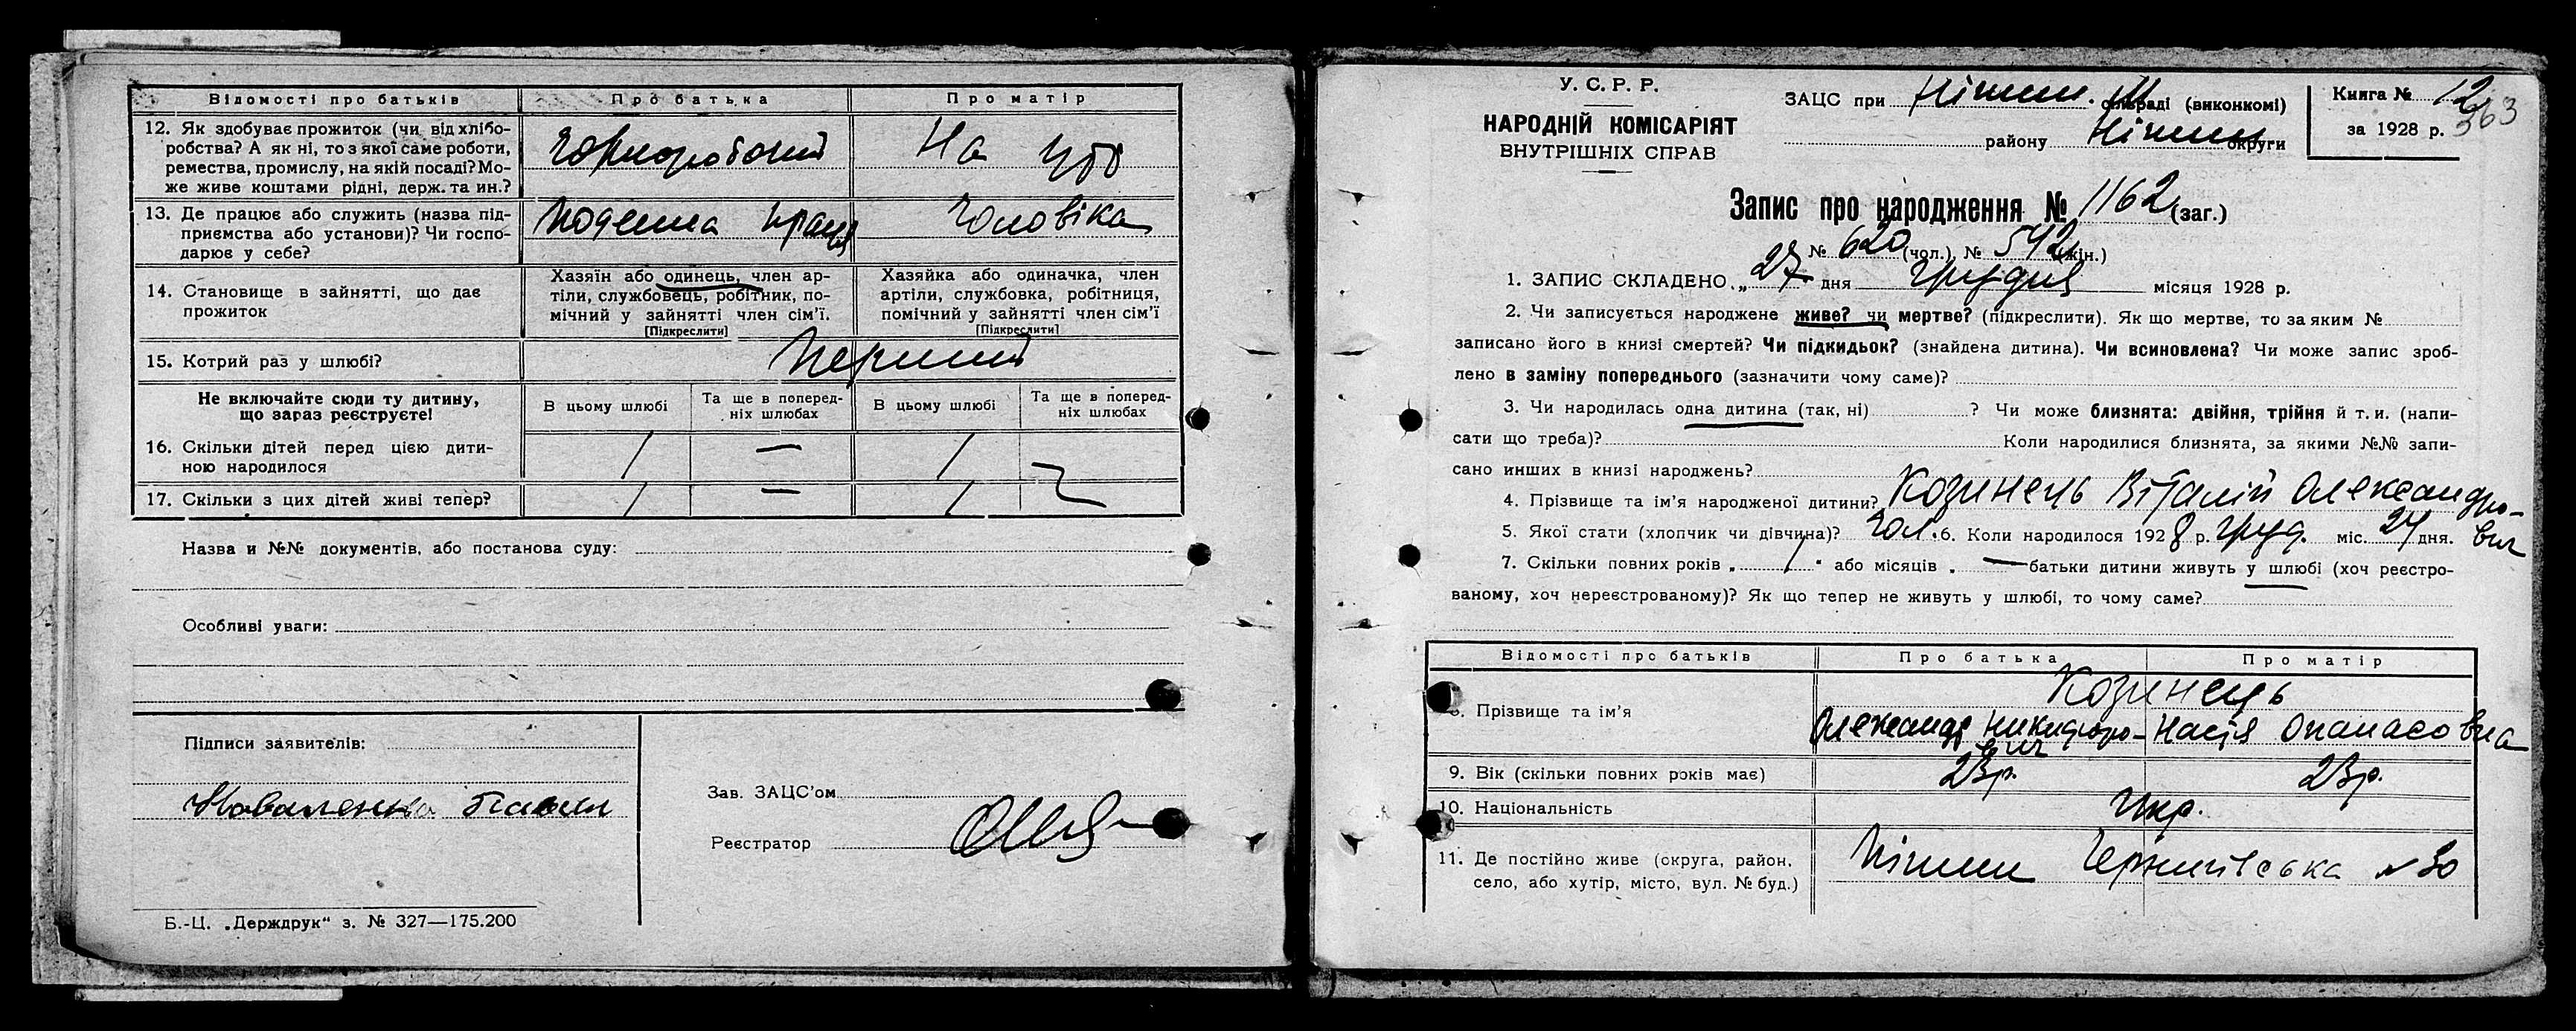 Відомості про батьків Про батька Про матір
12. Як здобуває прожиток (чи від хлібо-
робства? А як ні, то з якої саме роботи,
ремества, промислу, на якій посаді? Мо-
же живе коштами рідні, держ. та ин.?
чорноробочий На утр
13. Де працює або служить (назва під-
приємства або установи)? Чи госпо-
дарює у себе?
Поденна праця чоловіка
14. Становище в зайнятті, що дає
прожиток
Хазяїн або одинець, член ар-
тіли, службовець, робітник, по-
мічний у зайнятті член сім'ї.
[Підкреслити]
Хазяйка або одиначка, член
артіли, службовка, робітниця,
помічний у зайнятті член сім'ї
[Підкреслити]
15. Котрий раз у шлюбі? Перший
Не включайте сюди ту дитину,
що зараз реєструєте!
В цьому шлюбі Та ще в поперед-
ніх шлюбах В цьому шлюбі Та ще в поперед-
ніх шлюбах
16. Скільки дітей перед цією дити-
ною народилося
1 — 1
17. Скільки з цих дітей живі тепер? 1 — 1
Назва и №№ документів, або постанова суду:
Особливі уваги:
Підписи заявителів:
Зав. ЗАЦС'ом
Реєстратор
Б.-Ц. „Держдрук“ з. № 327—175.200
У. С. Р. Р.
НАРОДНІЙ КОМІСАРІЯТ
ВНУТРІШНІХ СПРАВ
ЗАЦС при Ніжин. сільраді (виконкомі)
району Ніжин округи
Книга № 12
за 1928 р. 363
Запис про народження № 1162 (заг.)
№ 620 (чол.), № 542 (жін.)
1. ЗАПИС СКЛАДЕНО „ 27 дня грудня місяця 1928 р.
2. Чи записується народжене живе? чи мертве? (підкреслити). Як що мертве, то за яким №
записано його в книзі смертей? Чи підкидьок? (знайдена дитина). Чи всиновлена? Чи може запис зроб-
лено в заміну попереднього (зазначити чому саме)?
3. Чи народилась одна дитина (так, ні) ? Чи може близнята: двійня, трійня й т. и. (напи-
сати що треба)? Коли народилися близнята, за якими №№ запи-
сано инших в книзі народжень?
4. Прізвище та ім'я народженої дитини? Козинець Віталій Олександро-
вич
5. Якої стати (хлопчик чи дівчина)? Чол. 6. Коли народилося 1928 р. груд. міс. 24 дня.
7. Скільки повних років „ 1 “ або місяців „ — батьки дитини живуть у шлюбі (хоч реєстро-
ваному, хоч нереєстрованому)? Як що тепер не живуть у шлюбі, то чому саме?
Відомості про батьків Про батька Про матір
8. Прізвище та ім'я
Козинець
Олександр Никифоро-
вич
Настя Опанасовна
9. Вік (скільки повних років має) 23р. 23р.
10. Національність Укр.
11. Де постійно живе (округа, район,
село, або хутір, місто, вул. № буд.)
Ніжин Чернигівська № 30